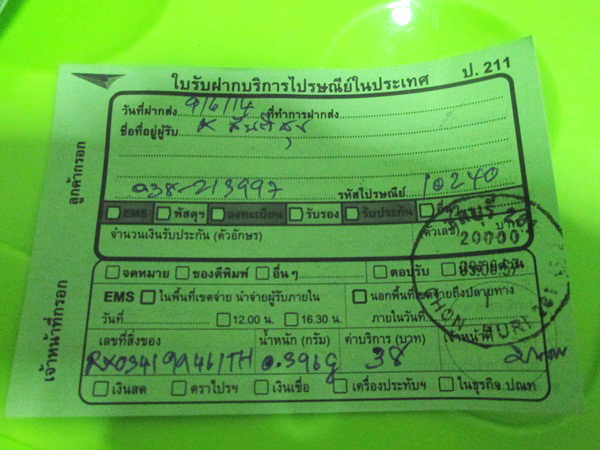 ใบรับฝากบริการไปรษณีย์ในประเทศ ป. 211
วันที่ฝากส่ง 9/6/14 ที่ทำการฝากส่ง
ชื่อที่อยู่ผู้รับ K สันติสุข
038-213997 รหัสไปรษณีย์ 10240
EMS พัสดุฯ ลงทะเบียน รับรอง รับประกัน อื่นๆ
จำนวนเงินรับประกัน (ตัวอักษร) (ตัวเลข) บาท
ลูกค้ากรอก
ชลบุรี
20000
09.06.57
CHON BURI
จดหมาย ของตีพิมพ์ อื่น ๆ ตอบรับ
EMS ในพื้นที่เขตจ่าย นำจ่ายผู้รับภายใน นอกพื้นที่เขตจ่ายถึงปลายทาง
วันที่ 12.00 น. 16.30 น. ภายในวันที่
เลขที่สิ่งของ น้ำหนัก (กรัม) ค่าบริการ (บาท) เจ้าหน้าที่
RX034199461TH 0.396g 38
เงินสด ตราไปรฯ เงินเชื่อ เครื่องประทับฯ ในธุรกิจ ปณท
เจ้าหน้าที่กรอก